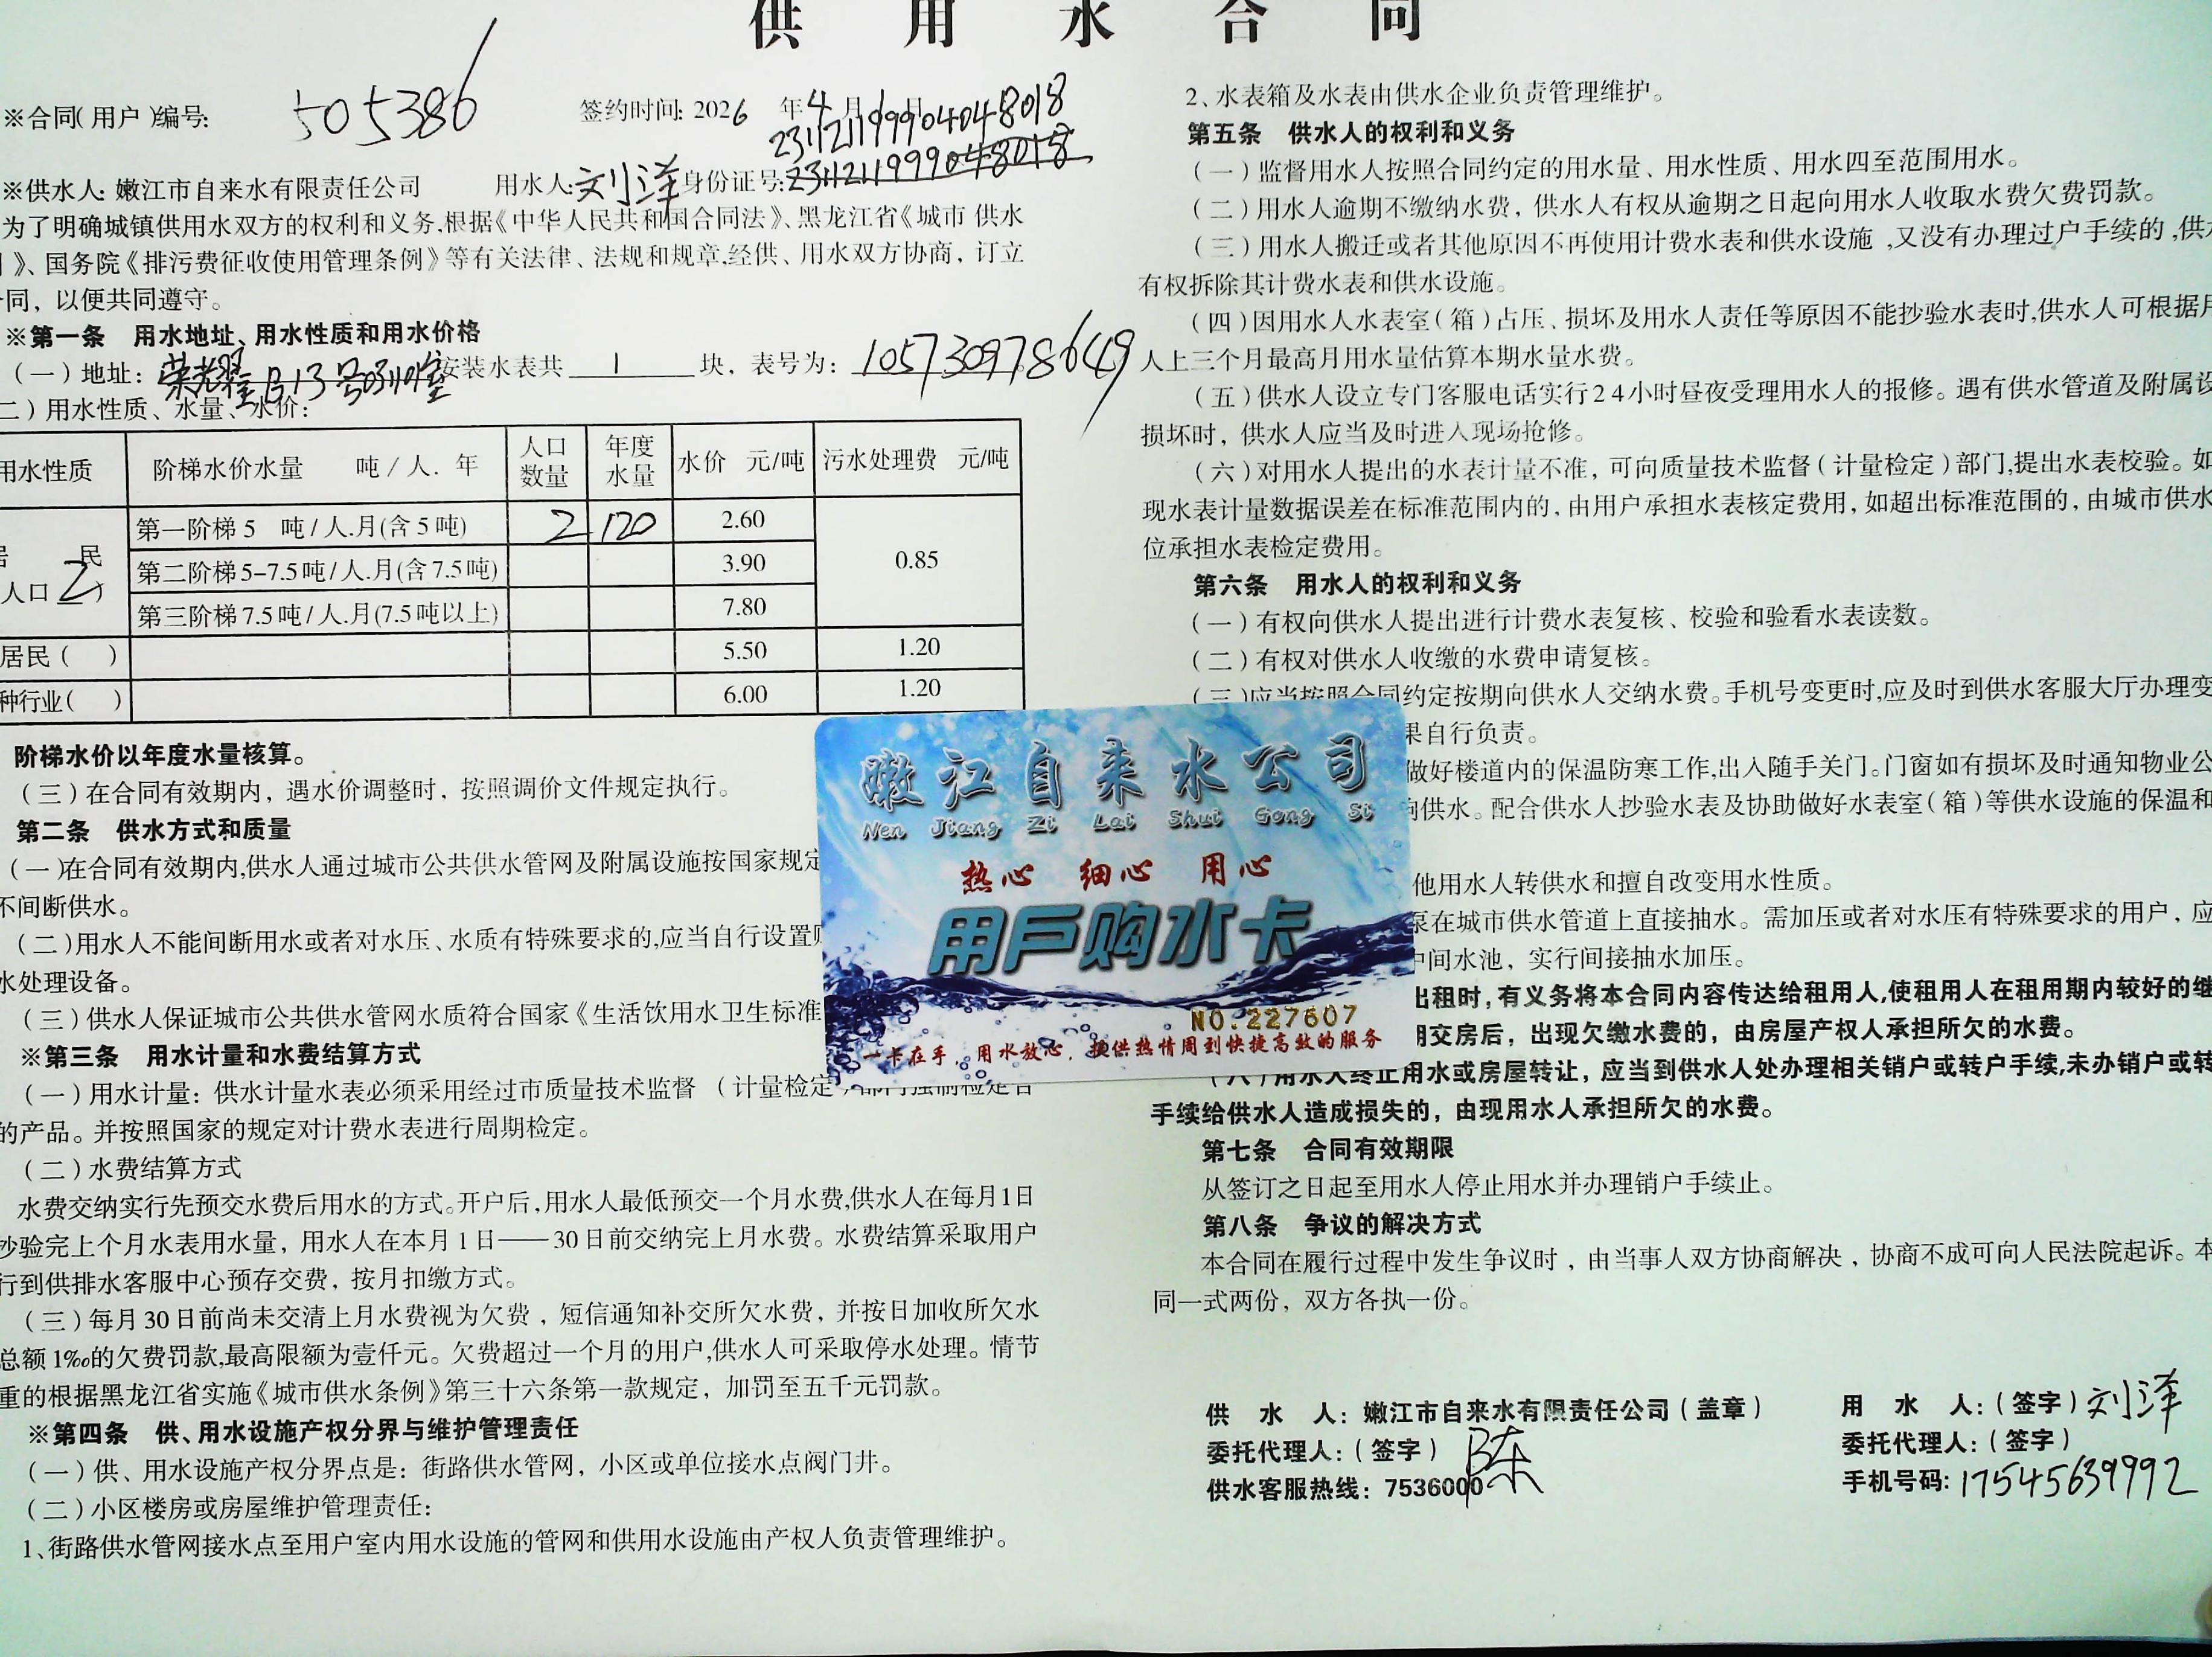 供用水合同
※合同(用户)编号: 505386
签约时间: 2026 年 4 月 日
231121199904048018
※供水人: 嫩江市自来水有限责任公司 用水人: 刘泽 身份证号:
为了明确城镇供用水双方的权利和义务,根据《中华人民共和国合同法》、黑龙江省《城市 供水
》、国务院《排污费征收使用管理条例》等有关法律、法规和规章,经供、用水双方协商，订立
同，以便共同遵守。
※第一条 用水地址、用水性质和用水价格
(一)地址: 安装水表共 1 块，表号为: 105730978649
二)用水性质、水量、水价:
用水性质 阶梯水价水量 吨/人. 年 人口数量 年度水量 水价 元/吨 污水处理费 元/吨
民 人口 2) 第一阶梯5 吨/人.月(含5吨) 2 120 2.60 0.85
第二阶梯5-7.5吨/人.月(含7.5吨) 3.90
第三阶梯7.5吨/人.月(7.5吨以上) 7.80
居民( ) 5.50 1.20
种行业( ) 6.00 1.20
阶梯水价以年度水量核算。
(三)在合同有效期内，遇水价调整时，按照调价文件规定执行。
第二条 供水方式和质量
(一)在合同有效期内,供水人通过城市公共供水管网及附属设施按国家规定
不间断供水。
(二)用水人不能间断用水或者对水压、水质有特殊要求的,应当自行设置
水处理设备。
(三)供水人保证城市公共供水管网水质符合国家《生活饮用水卫生标准
※第三条 用水计量和水费结算方式
(一)用水计量: 供水计量水表必须采用经过市质量技术监督 (计量检定)部门强制检定合
的产品。并按照国家的规定对计费水表进行周期检定。
(二)水费结算方式
水费交纳实行先预交水费后用水的方式。开户后,用水人最低预交一个月水费,供水人在每月1日
抄验完上个月水表用水量，用水人在本月1日——30日前交纳完上月水费。水费结算采取用户
行到供排水客服中心预存交费，按月扣缴方式。
(三)每月30日前尚未交清上月水费视为欠费，短信通知补交所欠水费，并按日加收所欠水
总额1‰的欠费罚款,最高限额为壹仟元。欠费超过一个月的用户,供水人可采取停水处理。情节
重的根据黑龙江省实施《城市供水条例》第三十六条第一款规定，加罚至五千元罚款。
※第四条 供、用水设施产权分界与维护管理责任
(一)供、用水设施产权分界点是: 街路供水管网，小区或单位接水点阀门井。
(二)小区楼房或房屋维护管理责任:
1、街路供水管网接水点至用户室内用水设施的管网和供用水设施由产权人负责管理维护。
2、水表箱及水表由供水企业负责管理维护。
第五条 供水人的权利和义务
(一)监督用水人按照合同约定的用水量、用水性质、用水四至范围用水。
(二)用水人逾期不缴纳水费，供水人有权从逾期之日起向用水人收取水费欠费罚款。
(三)用水人搬迁或者其他原因不再使用计费水表和供水设施,又没有办理过户手续的,供水
有权拆除其计费水表和供水设施。
(四)因用水人水表室(箱)占压、损坏及用水人责任等原因不能抄验水表时,供水人可根据用
人上三个月最高月用水量估算本期水量水费。
(五)供水人设立专门客服电话实行24小时昼夜受理用水人的报修。遇有供水管道及附属设
损坏时，供水人应当及时进入现场抢修。
(六)对用水人提出的水表计量不准，可向质量技术监督(计量检定)部门,提出水表校验。如
现水表计量数据误差在标准范围内的，由用户承担水表核定费用，如超出标准范围的，由城市供水
位承担水表检定费用。
第六条 用水人的权利和义务
(一)有权向供水人提出进行计费水表复核、校验和验看水表读数。
(二)有权对供水人收缴的水费申请复核。
(三)应当按照合同约定按期向供水人交纳水费。手机号变更时,应及时到供水客服大厅办理变
果自行负责。
做好楼道内的保温防寒工作,出入随手关门。门窗如有损坏及时通知物业公
供水。配合供水人抄验水表及协助做好水表室(箱)等供水设施的保温和
他用水人转供水和擅自改变用水性质。
泵在城市供水管道上直接抽水。需加压或者对水压有特殊要求的用户，应
中间水池，实行间接抽水加压。
出租时,有义务将本合同内容传达给租用人,使租用人在租用期内较好的继
期交房后，出现欠缴水费的，由房屋产权人承担所欠的水费。
(八)用水人终止用水或房屋转让，应当到供水人处办理相关销户或转户手续,未办销户或转
手续给供水人造成损失的，由现用水人承担所欠的水费。
第七条 合同有效期限
从签订之日起至用水人停止用水并办理销户手续止。
第八条 争议的解决方式
本合同在履行过程中发生争议时，由当事人双方协商解决，协商不成可向人民法院起诉。本
同一式两份，双方各执一份。
供 水 人: 嫩江市自来水有限责任公司(盖章)
委托代理人:(签字) 陈
供水客服热线: 7536000
用 水 人:(签字) 刘泽
委托代理人:(签字)
手机号码: 17545639992
嫩江自来水公司
Nen Jiang Zi Lai Shui Gong Si
热心 细心 用心
用户购水卡
NO.227607
一卡在手，用水放心，提供热情周到快捷高效的服务